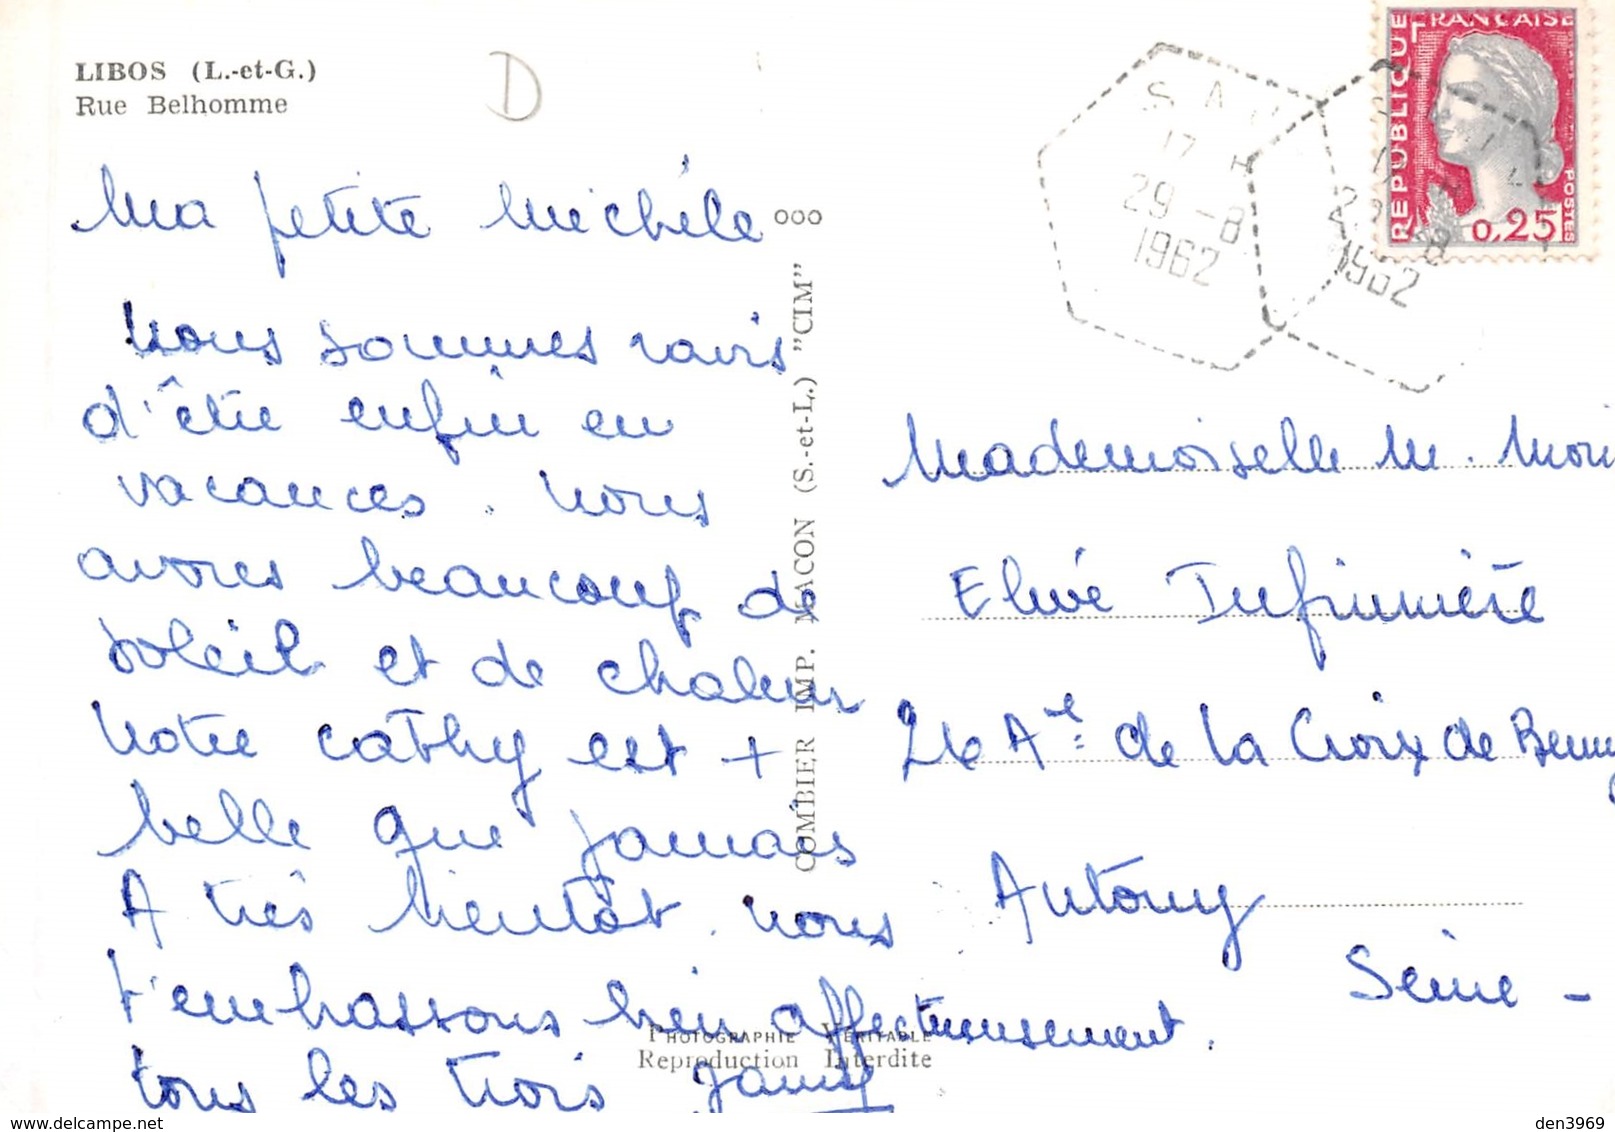 LIBOS (L.-et-G.)
Rue Belhomme
D
Ma petite Michèle
Nous sommes ravis
d'être enfin en
vacances. Nous
avons beaucoup de
soleil et de chaleur
Notre Cathy est +
belle que jamais
A très bientôt. nous
t'embrassons bien affectueusement.
tous les trois
ooo
COMBIER IMP. MACON (S.-et-L.) "CIM"
PHOTOGRAPHIE VÉRITABLE
Reproduction Interdite
17 H
29 -8
1962
1962
REPUBLIQUE FRANÇAISE
POSTES
0,25
Mademoiselle M.
Elève Infirmière
26 Ave de la Croix de
Antony
Seine -
delcampe.net
den3969